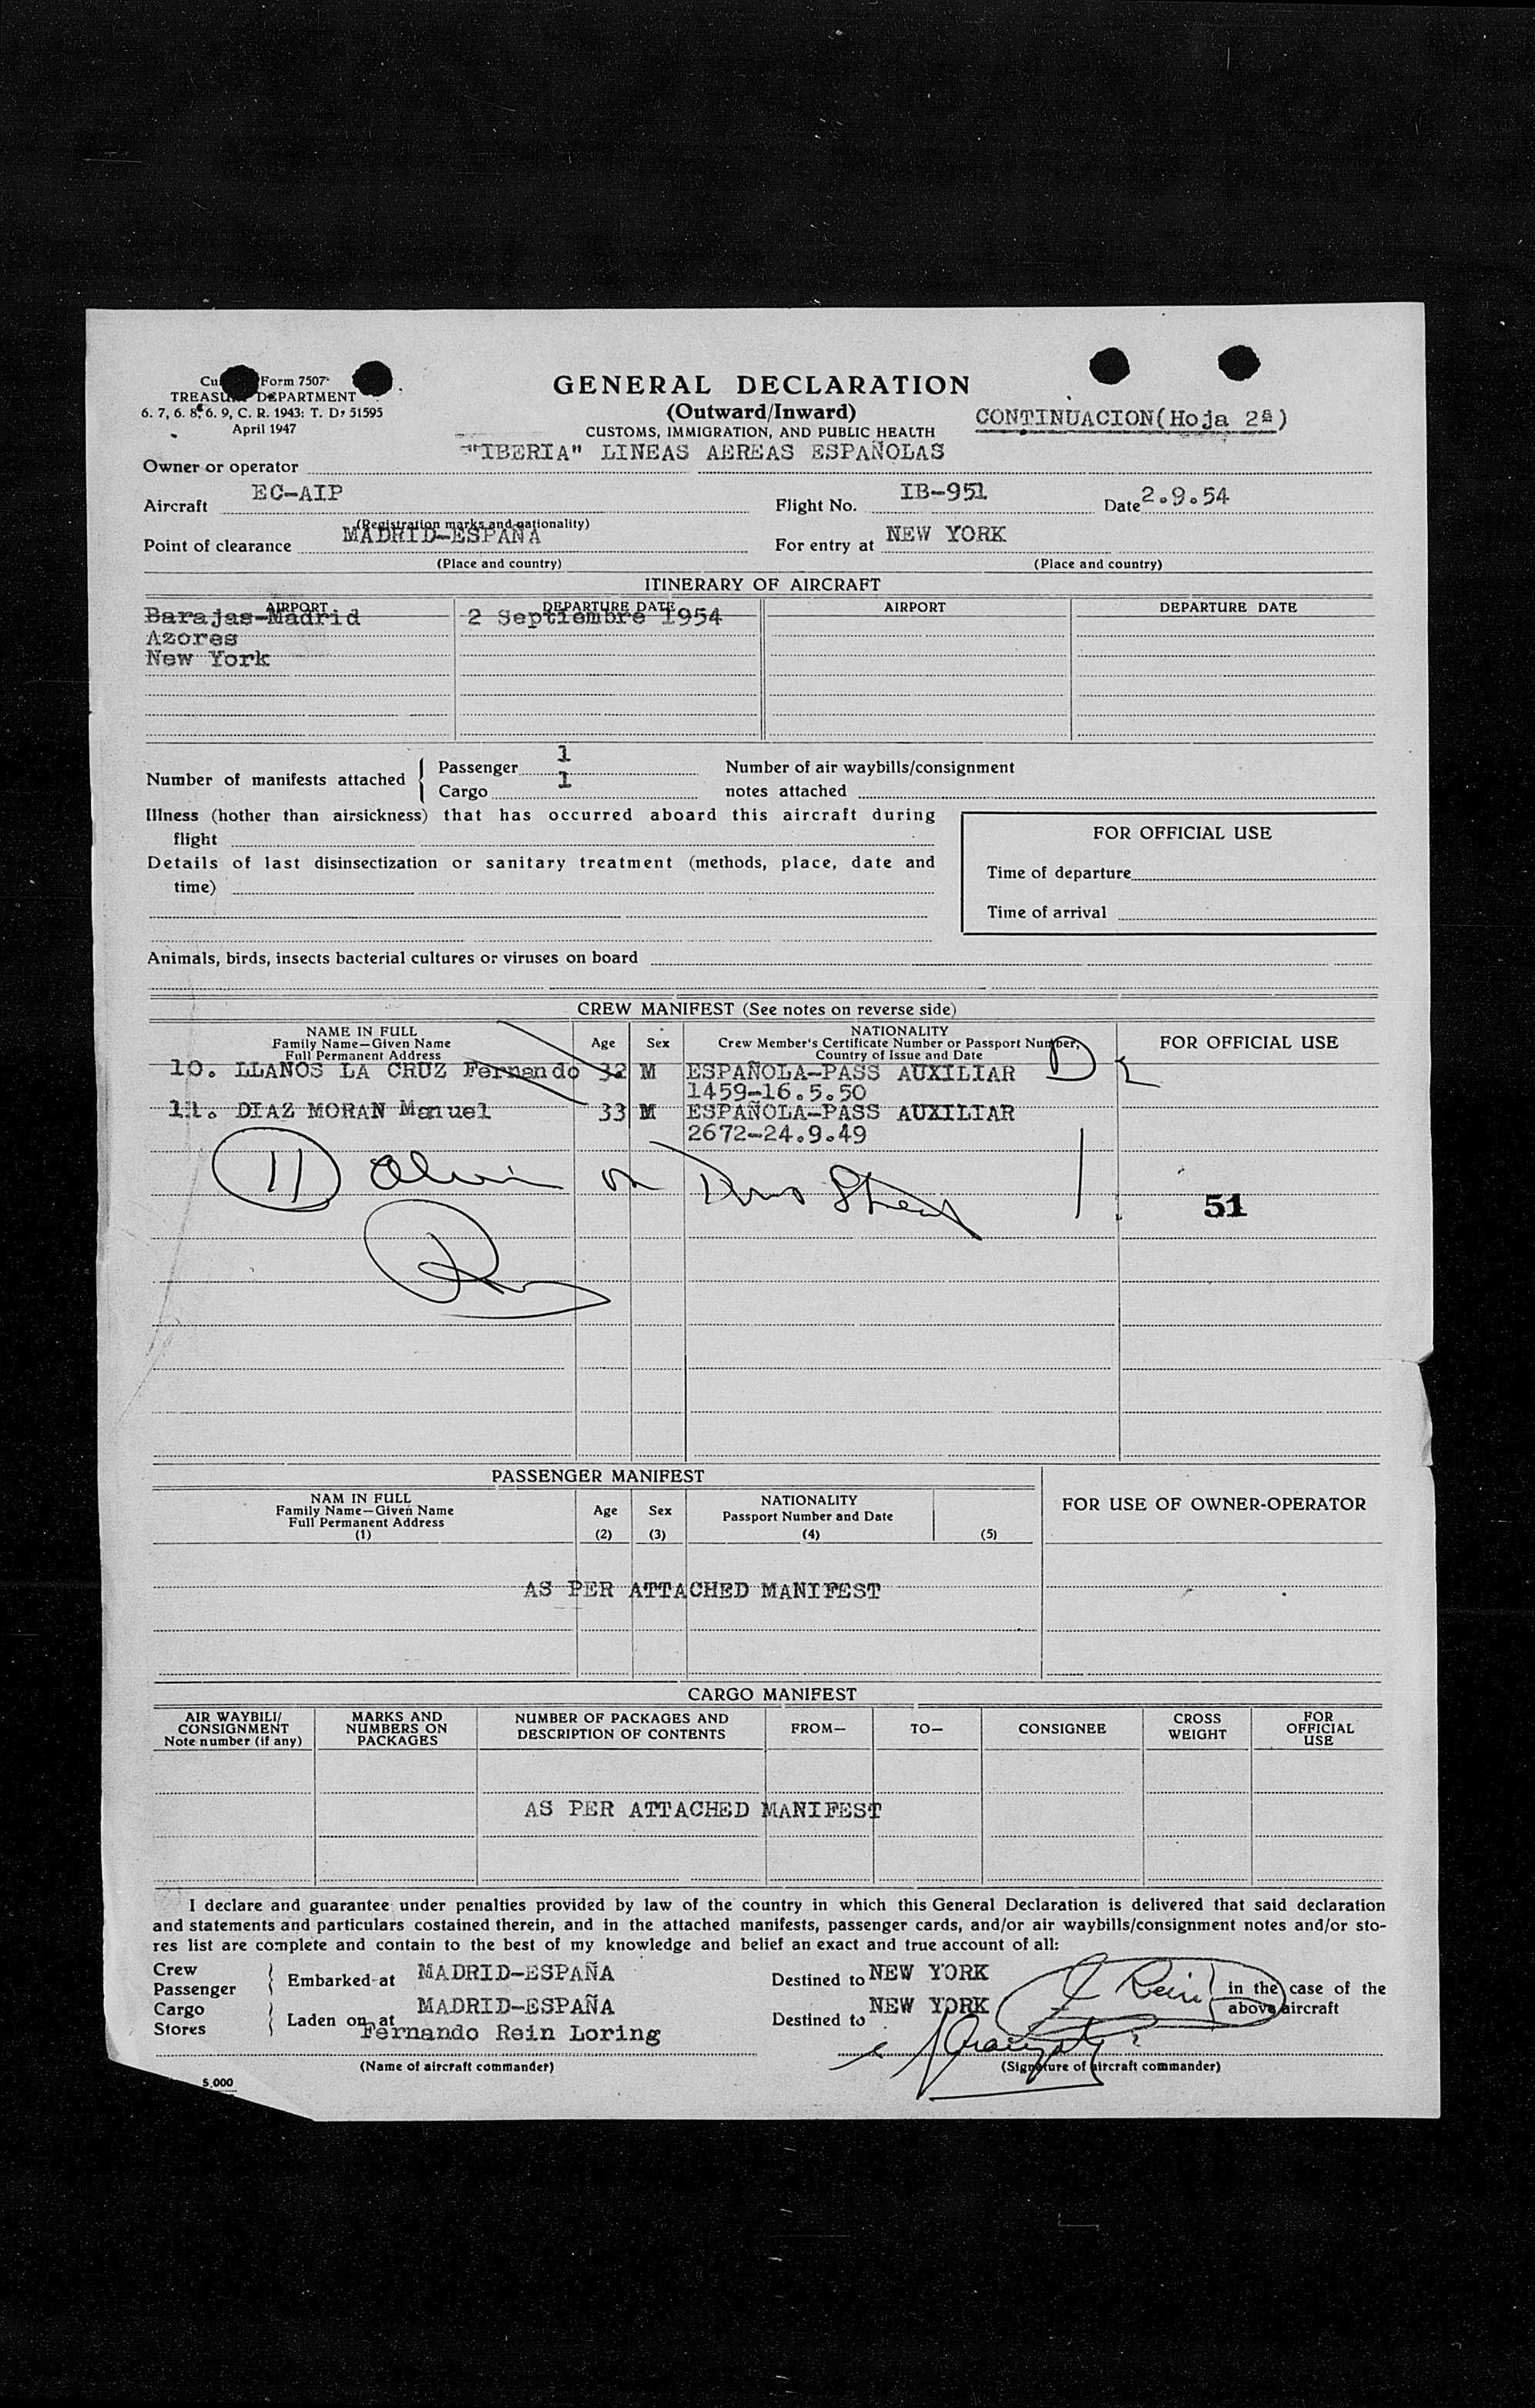 Form 7507
GENERAL DECLARATION
TREASURY DEPARTMENT
(Outward/Inward)
CONTINUACION(Hoja 2ª)
6. 7, 6. 8, 6. 9, C. R. 1943: T. D. 51595
April 1947
CUSTOMS, IMMIGRATION, AND PUBLIC HEALTH
Owner or operator "IBERIA" LINEAS AEREAS ESPAÑOLAS
Aircraft EC-AIP Flight No. IB-951 Date 2.9.54
(Registration marks and nationality)
Point of clearance MADRID-ESPAÑA For entry at NEW YORK
(Place and country) (Place and country)
ITINERARY OF AIRCRAFT
AIRPORT DEPARTURE DATE AIRPORT DEPARTURE DATE
Barajas-Madrid 2 Septiembre 1954
Azores
New York
Number of manifests attached { Passenger 1 Number of air waybills/consignment
Cargo 1 notes attached
Illness (hother than airsickness) that has occurred aboard this aircraft during
flight
FOR OFFICIAL USE
Details of last disinsectization or sanitary treatment (methods, place, date and
time)
Time of departure
Time of arrival
Animals, birds, insects bacterial cultures or viruses on board
CREW MANIFEST (See notes on reverse side)
NAME IN FULL
Family Name—Given Name
Full Permanent Address
Age Sex
NATIONALITY
Crew Member's Certificate Number or Passport Number,
Country of Issue and Date
FOR OFFICIAL USE
10. LLANOS LA CRUZ Fernando 32 M ESPAÑOLA-PASS AUXILIAR
1459-16.5.50
11. DIAZ MORAN Manuel 33 M ESPAÑOLA-PASS AUXILIAR
2672-24.9.49
11 on Sheet
51
PASSENGER MANIFEST
NAM IN FULL
Family Name—Given Name
Full Permanent Address
(1)
Age
(2)
Sex
(3)
NATIONALITY
Passport Number and Date
(4)
(5)
FOR USE OF OWNER-OPERATOR
AS PER ATTACHED MANIFEST
CARGO MANIFEST
AIR WAYBILI/
CONSIGNMENT
Note number (if any)
MARKS AND
NUMBERS ON
PACKAGES
NUMBER OF PACKAGES AND
DESCRIPTION OF CONTENTS
FROM—
TO—
CONSIGNEE
CROSS
WEIGHT
FOR
OFFICIAL
USE
AS PER ATTACHED MANIFEST
I declare and guarantee under penalties provided by law of the country in which this General Declaration is delivered that said declaration
and statements and particulars costained therein, and in the attached manifests, passenger cards, and/or air waybills/consignment notes and/or sto-
res list are complete and contain to the best of my knowledge and belief an exact and true account of all:
Crew
Passenger
Embarked at MADRID-ESPAÑA Destined to NEW YORK
F Rein
in the case of the
above aircraft
Cargo
Stores
Laden on at MADRID-ESPAÑA Destined to NEW YORK
Fernando Rein Loring
(Name of aircraft commander) (Signature of aircraft commander)
5,000